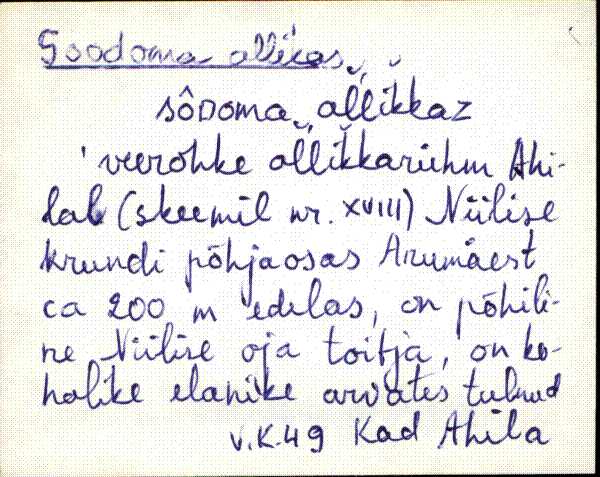 Soodoma allikas
sôDoma allikkaz
'veerohke allikkarühm Ahi-
lal (skeemil nr. XVIII) Niilise
krundi põhjaosas Arumäest
ca 200 m edelas, on põhili-
ne Niilise oja toitja, on ko-
halike elanike arvates tulnud
V.K.49 Kad Ahila